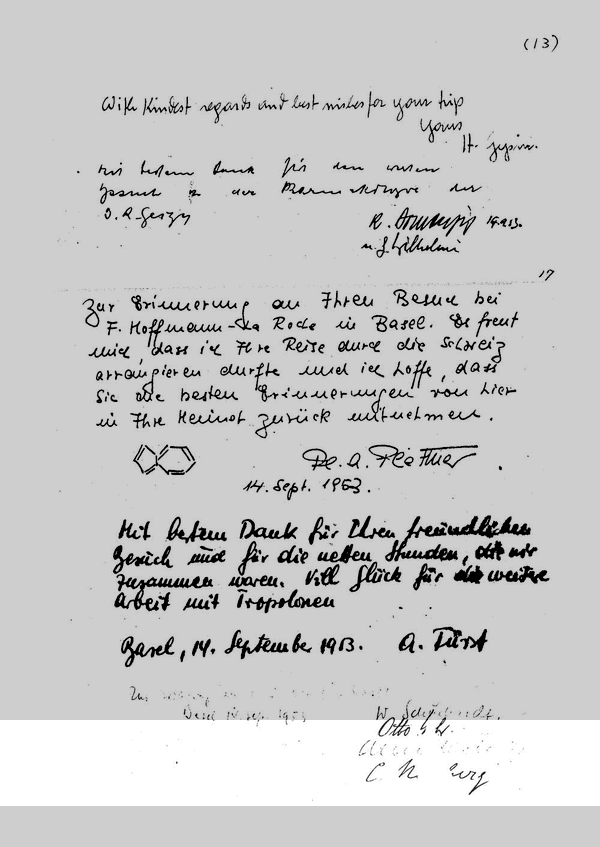 (13)
With kindest regards and best wishes for your trip
Yours
H. Gysin.
Mit bestem Dank für den
Besuch in der der
J. R. Geigy
R. 14.9.53.
u. J. Wilhelmi
17
Zur Erinnerung an Ihren Besuch bei
F. Hoffmann-La Roche in Basel. Es freut
mich, dass ich Ihre Reise durch die Schweiz
arrangieren durfte und ich hoffe, dass
Sie die besten Erinnerungen von hier
in Ihre Heimat zurück mitnehmen.
Pl. A. Plattner
14. Sept. 1953.
Mit bestem Dank für Ihren freundlichen
Besuch und für die netten Stunden, die wir
zusammen waren. Vill Glück für die weitere
Arbeit mit Tropolonen
Basel, 14. September 1953. A. Fürst
Zur
Basel 14. Sep. 1953
W.
Otto
C.